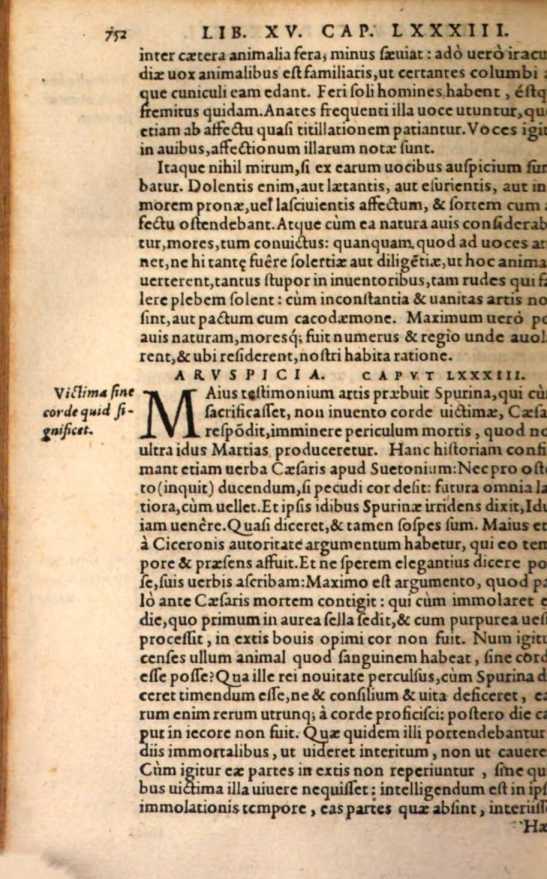 752 LIB. XV. CAP. LXXXIII.
inter cætera animalia fera, minus ſæuiat: adò uerò iracu
diæ uox animalibus eſt familiaris, ut certantes columbi a
que cuniculi eam edant. Feri ſoli homines habent, éſtq
fremitus quidam. Anates frequenti illa uoce utuntur, quo
etiam ab affectu quaſi titillationem patiantur. Voces igit
in auibus, affectionum illarum notæ ſunt.
Itaque nihil mirum, ſi ex earum uocibus auſpicium ſum
batur. Dolentis enim, aut lætantis, aut eſurientis, aut in
morem pronæ, uel laſciuientis affectum, & ſortem cum a
fectu oſtendebant. Atque cùm ea natura auis conſiderab
tur, mores, tum conuictus: quanquam quod ad uoces at
net, ne hi tantę fuêre ſolertiæ aut diligẽtiæ, ut hoc anima
uerterent, tantus ſtupor in inuentoribus, tam rudes qui fa
lere plebem ſolent: cùm inconſtantia & uanitas artis no
ſint, aut pactum cum cacodæmone. Maximum uerò po
auis naturam, moresq́; fuit numerus & regio unde auol
rent, & ubi reſiderent, noſtri habita ratione.
ARVSPICIA. CAPVT LXXXIII.
Victima ſine
corde quid ſi-
gnificet.
MAius teſtimonium artis præbuit Spurina, qui cù
ſacrificaſſet, non inuento corde uictimæ, Cæſa
reſpõdit, imminere periculum mortis, quod no
ultra idus Martias produceretur. Hanc hiſtoriam confi
mant etiam uerba Cæſaris apud Suetonium: Nec pro oſte
to (inquit) ducendum, ſi pecudi cor deſit: futura omnia læ
tiora, cùm uellet. Et ipſis idibus Spurinæ irridens dixit, Idu
iam uenêre. Quaſi diceret, & tamen ſoſpes ſum. Maius et
à Ciceronis autoritate argumentum habetur, qui eo tem
pore & præſens affuit. Et ne ſperem elegantius dicere poſ
ſe, ſuis uerbis aſcribam: Maximo eſt argumento, quod pa
lò ante Cæſaris mortem contigit: qui cùm immolaret e
die, quo primum in aurea ſella ſedit, & cum purpurea ueſt
proceſſit, in extis bouis opimi cor non fuit. Num igitu
cenſes ullum animal quod ſanguinem habeat, ſine cord
eſſe poſſe? Qua ille rei nouitate perculſus, cùm Spurina d
ceret timendum eſſe, ne & conſilium & uita deficeret, ea
rum enim rerum utrunq; à corde proficiſci: poſtero die ca
put in iecore non fuit. Quæ quidem illi portendebantur
diis immortalibus, ut uideret interitum, non ut cauere
Cùm igitur eæ partes in extis non reperiuntur, ſine qui
bus uictima illa uiuere nequiſſet: intelligendum eſt in ipſ
immolationis tempore, eas partes quæ abſint, interiiſſe
Hæ